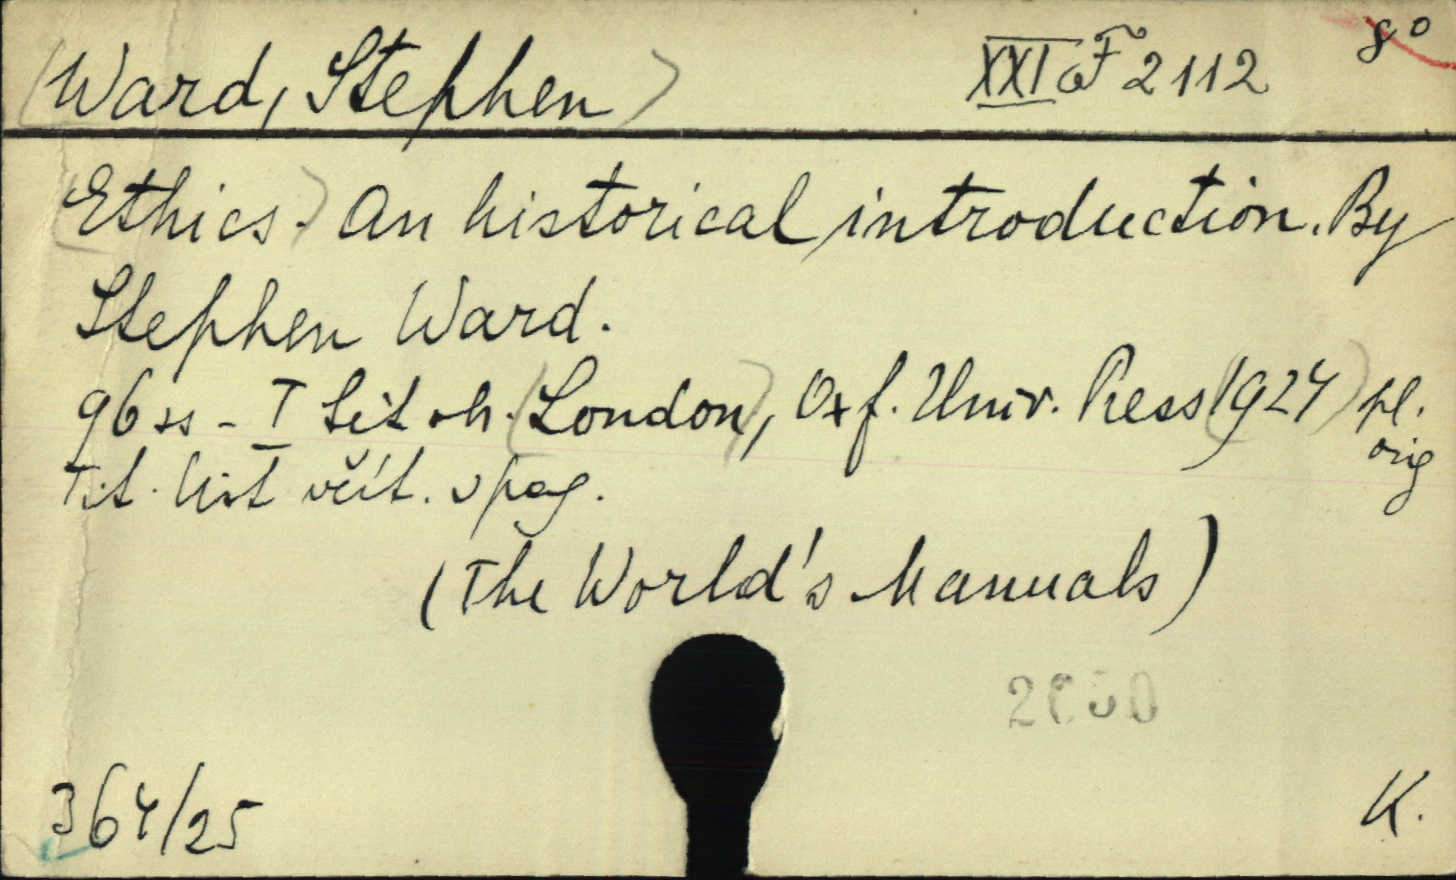 (Ward, Stephen) XXI F 2112 8°
(Ethics.) An historical introduction. By
Stephen Ward.
96 ss - I (London), Oxf. Univ. Press (1924) pl.
orig
Tit. list včít. v pag.
(The World's Manuals)
364/25 K.